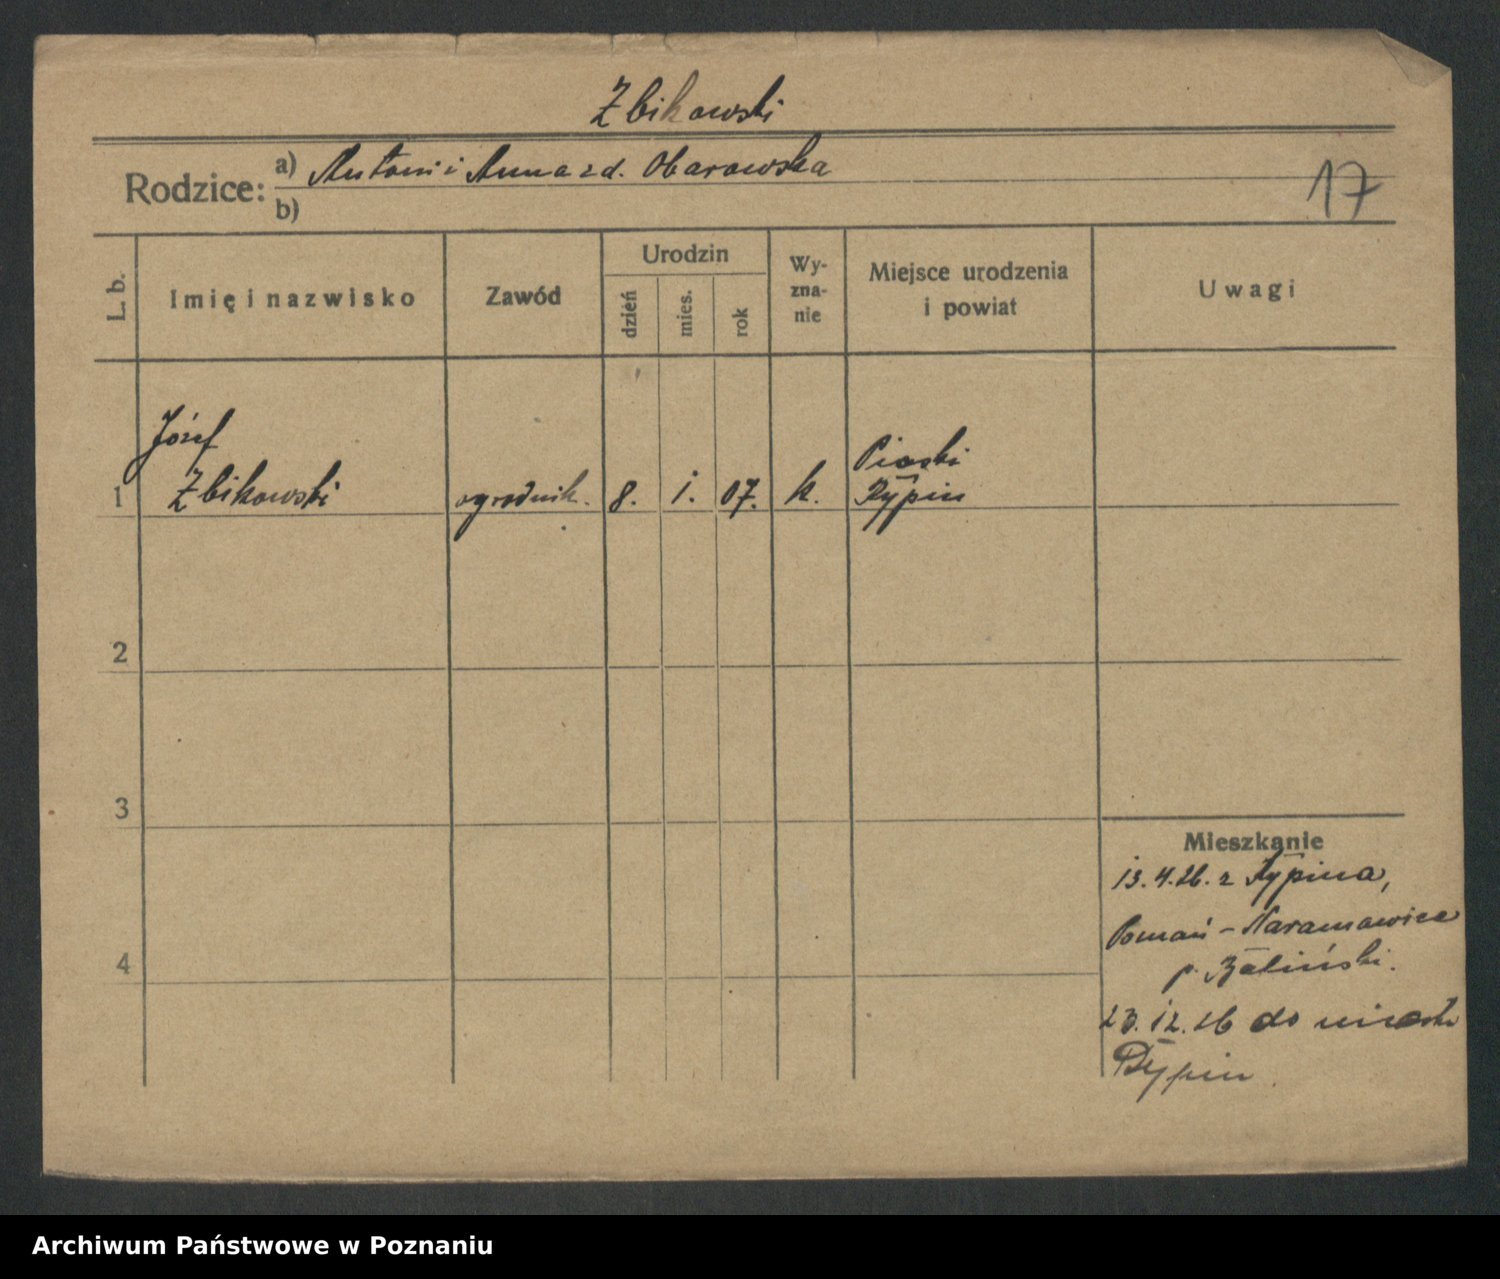 Zbikowski
Rodzice: a) Antoni i Anna z d. Obarowska
b)
17
L. b. Imię i nazwisko Zawód Urodzin dzień mies. rok Wy-zna-nie Miejsce urodzenia i powiat Uwagi
Józef Piaski
1 Zbikowski ogrodnik. 8. 1. 07. k. Rypin
2
3
4
Mieszkanie
13.4.26. z Rypina,
Poznań - Naramowice
p.
23.12.26 do miasta
Rypin.
Archiwum Państwowe w Poznaniu